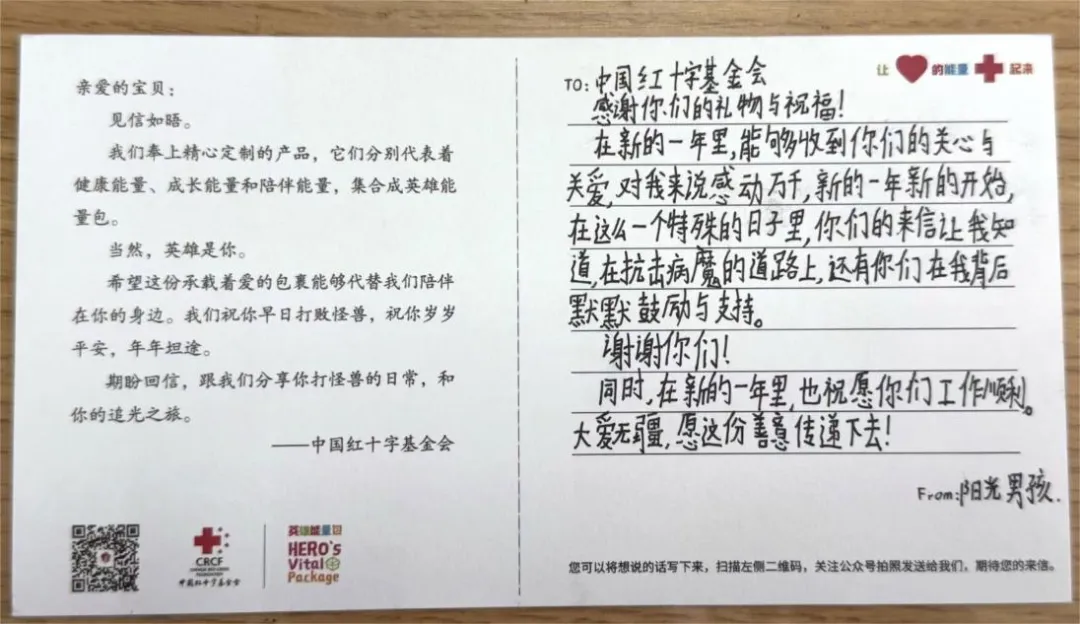 亲爱的宝贝：
见信如晤。
我们奉上精心定制的产品，它们分别代表着
健康能量、成长能量和陪伴能量，集合成英雄能
量包。
当然，英雄是你。
希望这份承载着爱的包裹能够代替我们陪伴
在你的身边。我们祝你早日打败怪兽，祝你岁岁
平安，年年坦途。
期盼回信，跟我们分享你打怪兽的日常，和
你的追光之旅。
——中国红十字基金会
CRCF
中国红十字基金会
英雄能量包
HERO's
Vital
Package
让的能量起来
TO：中国红十字基金会
感谢你们的礼物与祝福！
在新的一年里，能够收到你们的关心与
关爱，对我来说感动万千，新的一年新的开始，
在这么一个特殊的日子里，你们的来信让我知
道，在抗击病魔的道路上，还有你们在我背后
默默鼓励与支持。
谢谢你们！
同时，在新的一年里，也祝愿你们工作顺利。
大爱无疆，愿这份善意传递下去！
From：阳光男孩.
您可以将想说的话写下来，扫描左侧二维码，关注公众号拍照发送给我们，期待您的来信。